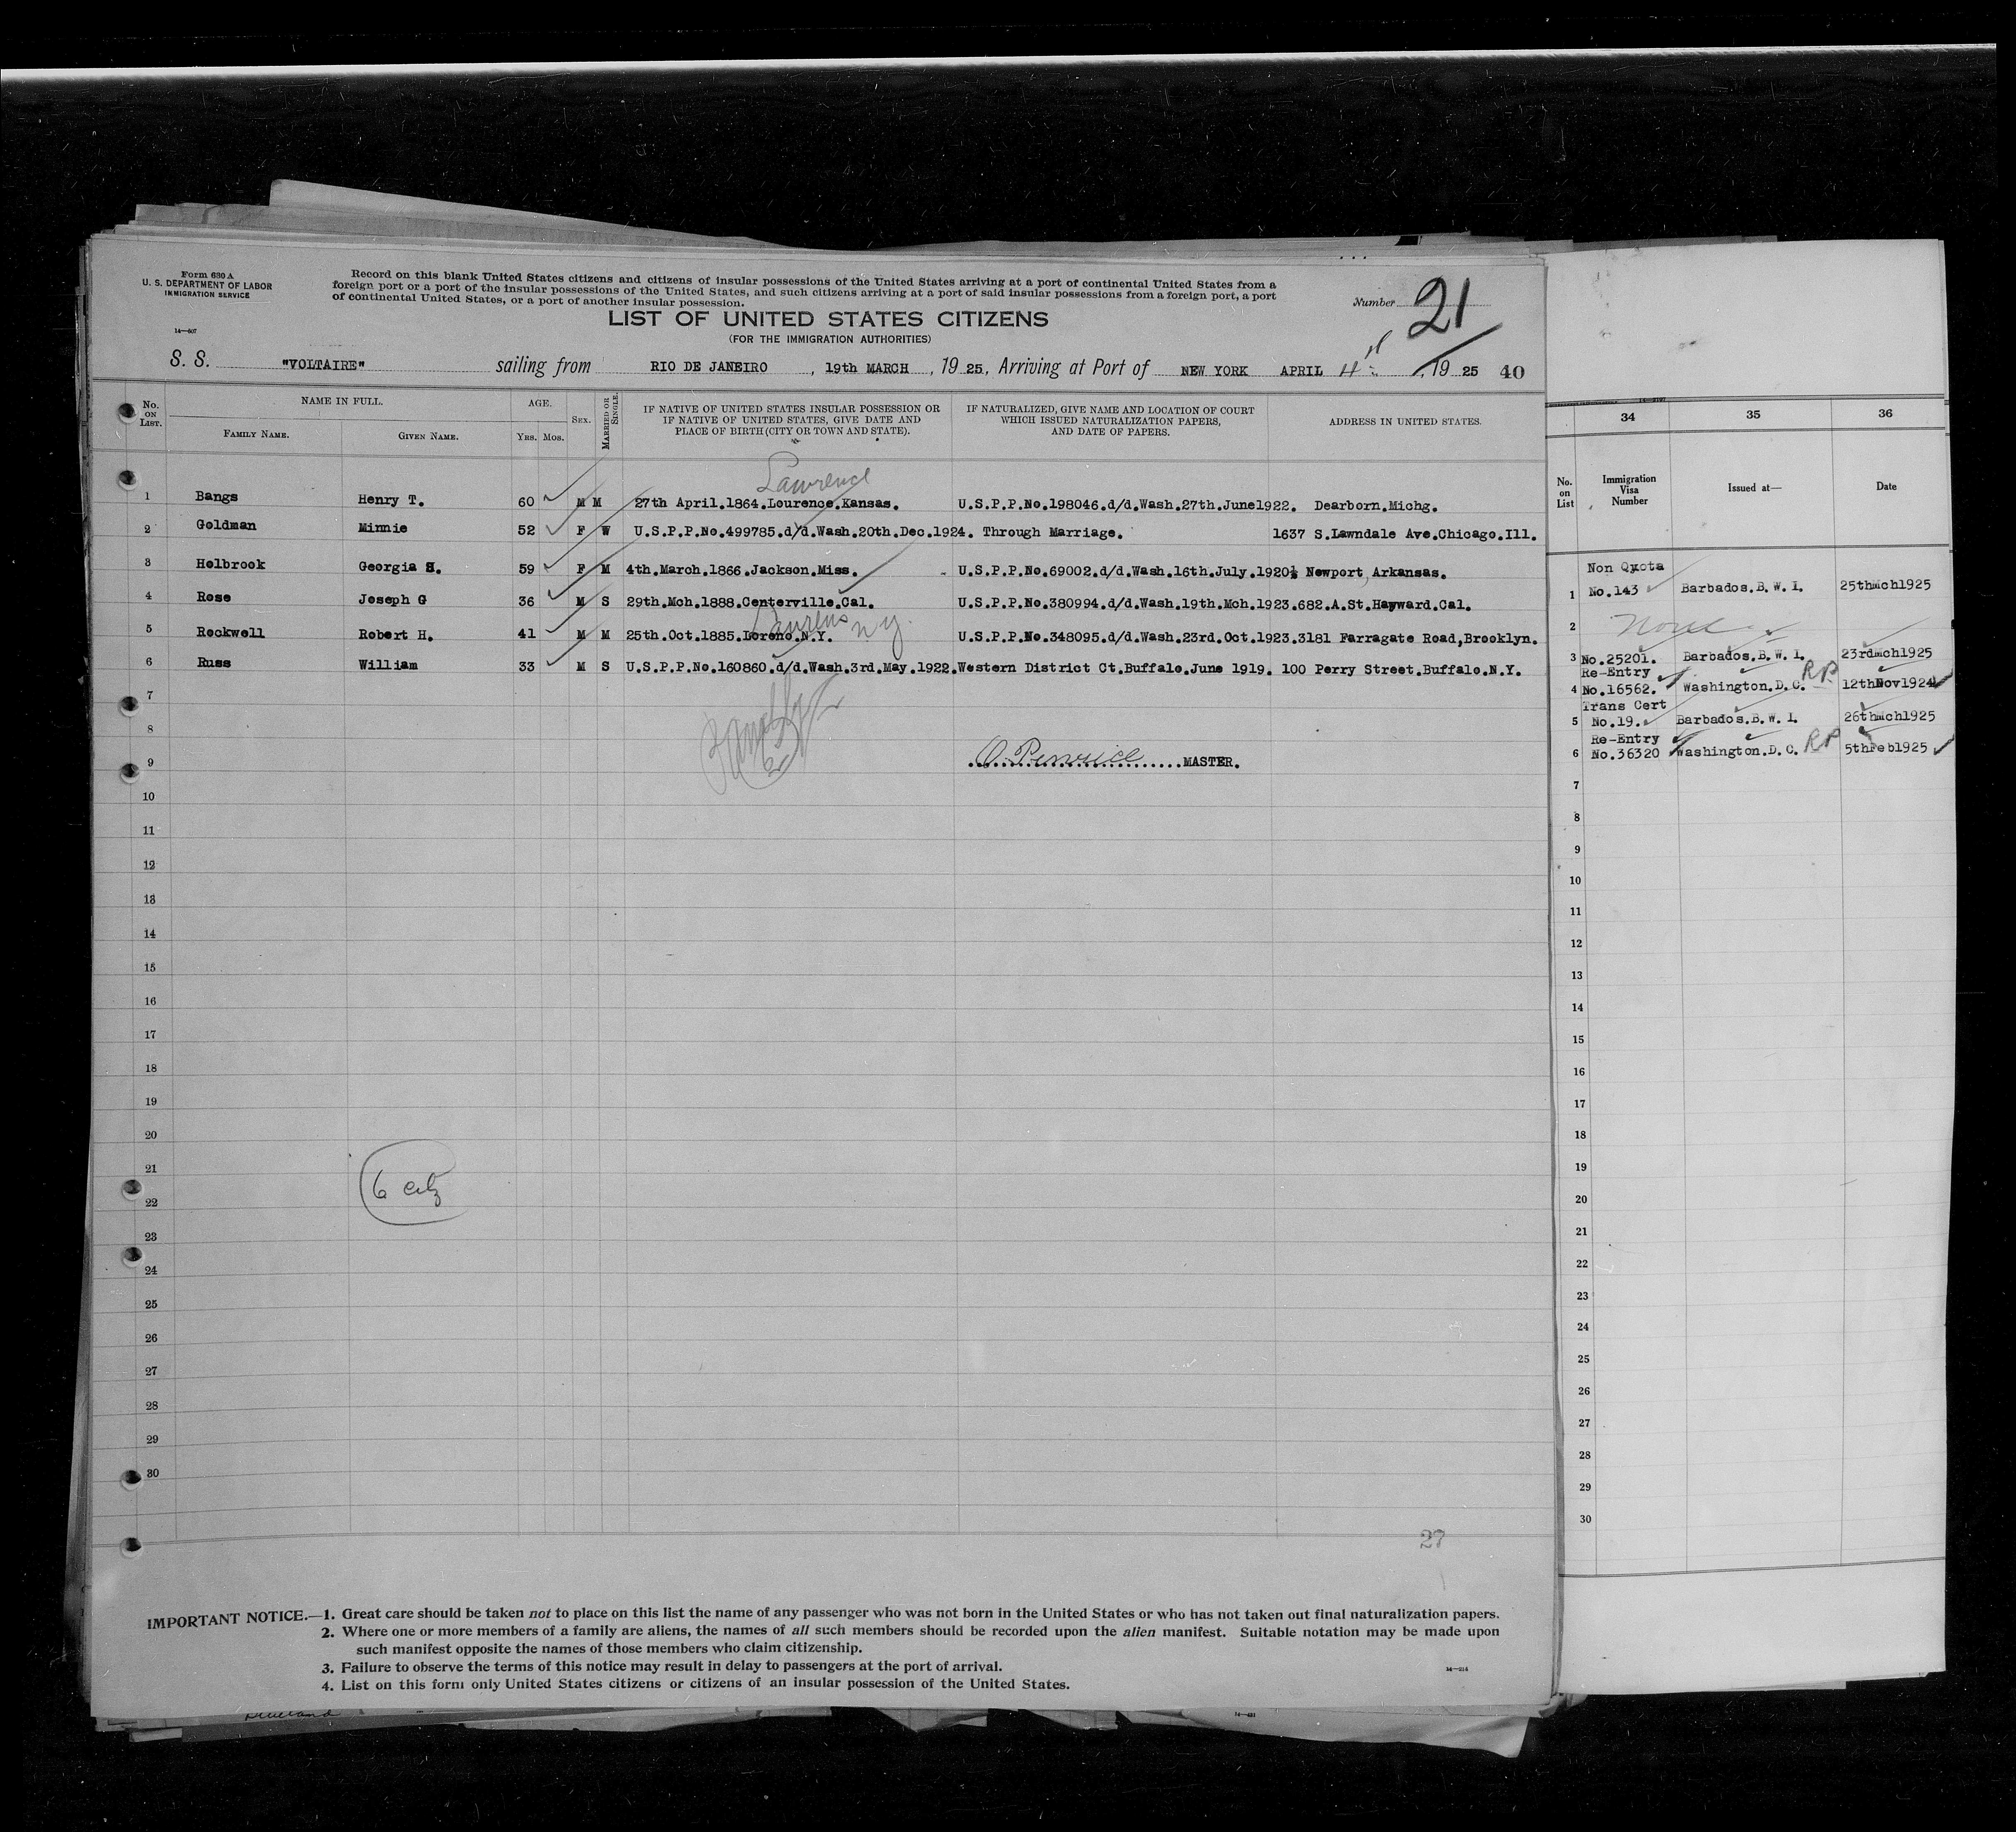 Form 630 A
U. S. DEPARTMENT OF LABOR
IMMIGRATION SERVICE
14—607
Record on this blank United States citizens and citizens of insular possessions of the United States arriving at a port of continental United States from a
foreign port or a port of the insular possessions of the United States, and such citizens arriving at a port of said insular possessions from a foreign port, a port
of continental United States, or a port of another insular possession.
Number 21
LIST OF UNITED STATES CITIZENS
(FOR THE IMMIGRATION AUTHORITIES)
S. S. "VOLTAIRE" sailing from RIO DE JANEIRO, 19th MARCH, 1925, Arriving at Port of NEW YORK APRIL 4, 1925 40
No. ON LIST. NAME IN FULL. AGE. SEX. MARRIED OR SINGLE. IF NATIVE OF UNITED STATES INSULAR POSSESSION OR IF NATIVE OF UNITED STATES, GIVE DATE AND PLACE OF BIRTH (CITY OR TOWN AND STATE). IF NATURALIZED, GIVE NAME AND LOCATION OF COURT WHICH ISSUED NATURALIZATION PAPERS, AND DATE OF PAPERS. ADDRESS IN UNITED STATES.
FAMILY NAME. GIVEN NAME. YRS. MOS.
Lawrence
1 Bangs Henry T. 60 M M 27th April.1864.Lourence.Kansas. U.S.P.P.No.198046.d/d.Wash.27th.June1922. Dearborn.Michg.
2 Goldman Minnie 52 F W U.S.P.P.No.499785.d/d.Wash.20th.Dec.1924. Through Marriage. 1637 S.Lawndale Ave.Chicago.Ill.
3 Holbrook Georgia S. 59 F M 4th.March.1866.Jackson.Miss. U.S.P.P.No.69002.d/d.Wash.16th.July.1920. Newport, Arkansas.
4 Rose Joseph G 36 M S 29th.Mch.1888.Centerville.Cal. U.S.P.P.No.380994.d/d.Wash.19th.Mch.1923.682.A.St.Hayward.Cal.
Laurens n y.
5 Rockwell Robert H. 41 M M 25th.Oct.1885.Loreno.N.Y. U.S.P.P.No.348095.d/d.Wash.23rd.Oct.1923.3181 Farragate Road,Brooklyn.
6 Russ William 33 M S U.S.P.P.No.160860.d/d.Wash.3rd.May.1922.Western District Ct.Buffalo.June 1919. 100 Perry Street.Buffalo.N.Y.
7
8
9 MASTER.
10
11
12
13
14
15
16
17
18
19
20
21
6 citz
22
23
24
25
26
27
28
29
30
27
IMPORTANT NOTICE.—1. Great care should be taken not to place on this list the name of any passenger who was not born in the United States or who has not taken out final naturalization papers.
2. Where one or more members of a family are aliens, the names of all such members should be recorded upon the alien manifest. Suitable notation may be made upon
such manifest opposite the names of those members who claim citizenship.
3. Failure to observe the terms of this notice may result in delay to passengers at the port of arrival.
4. List on this form only United States citizens or citizens of an insular possession of the United States.
14—214
34 35 36
No. on List Immigration Visa Number Issued at— Date
Non Quota
1 No.143 Barbados.B.W.I. 25thMch1925
2 None
3 No.25201. Barbados.B.W.I. 23rdMch1925
Re-Entry
4 No.16562. Washington.D.C. RP 12thNov1924
Trans Cert
5 No.19. Barbados.B.W.I. 26thMch1925
Re-Entry
6 No.36320 Washington.D.C. RP 5thFeb1925
7
8
9
10
11
12
13
14
15
16
17
18
19
20
21
22
23
24
25
26
27
28
29
30